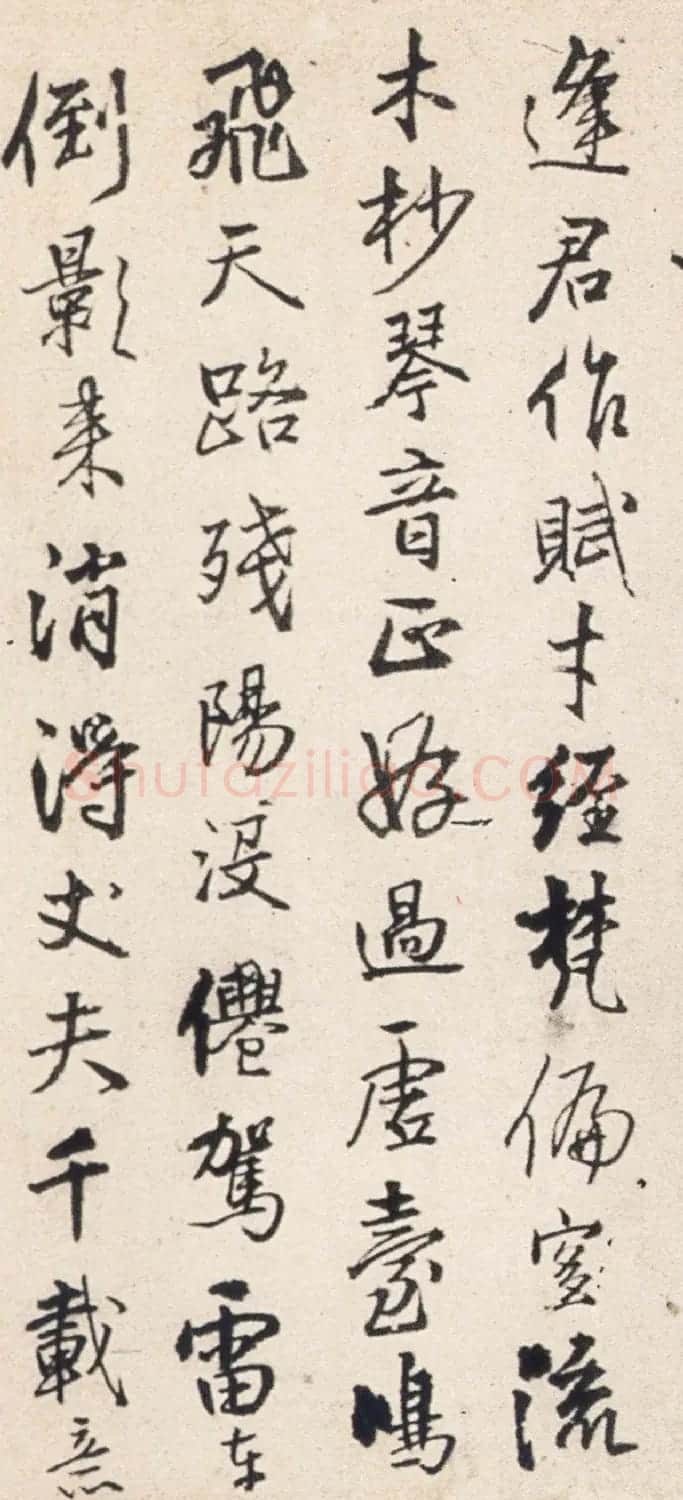 逢君作賦才經梵偏室流
木杪琴音正好過虛臺鳴
飛天路殘陽沒僊駕雷車
倒影来消得丈夫千載意
shufaziliao.COM